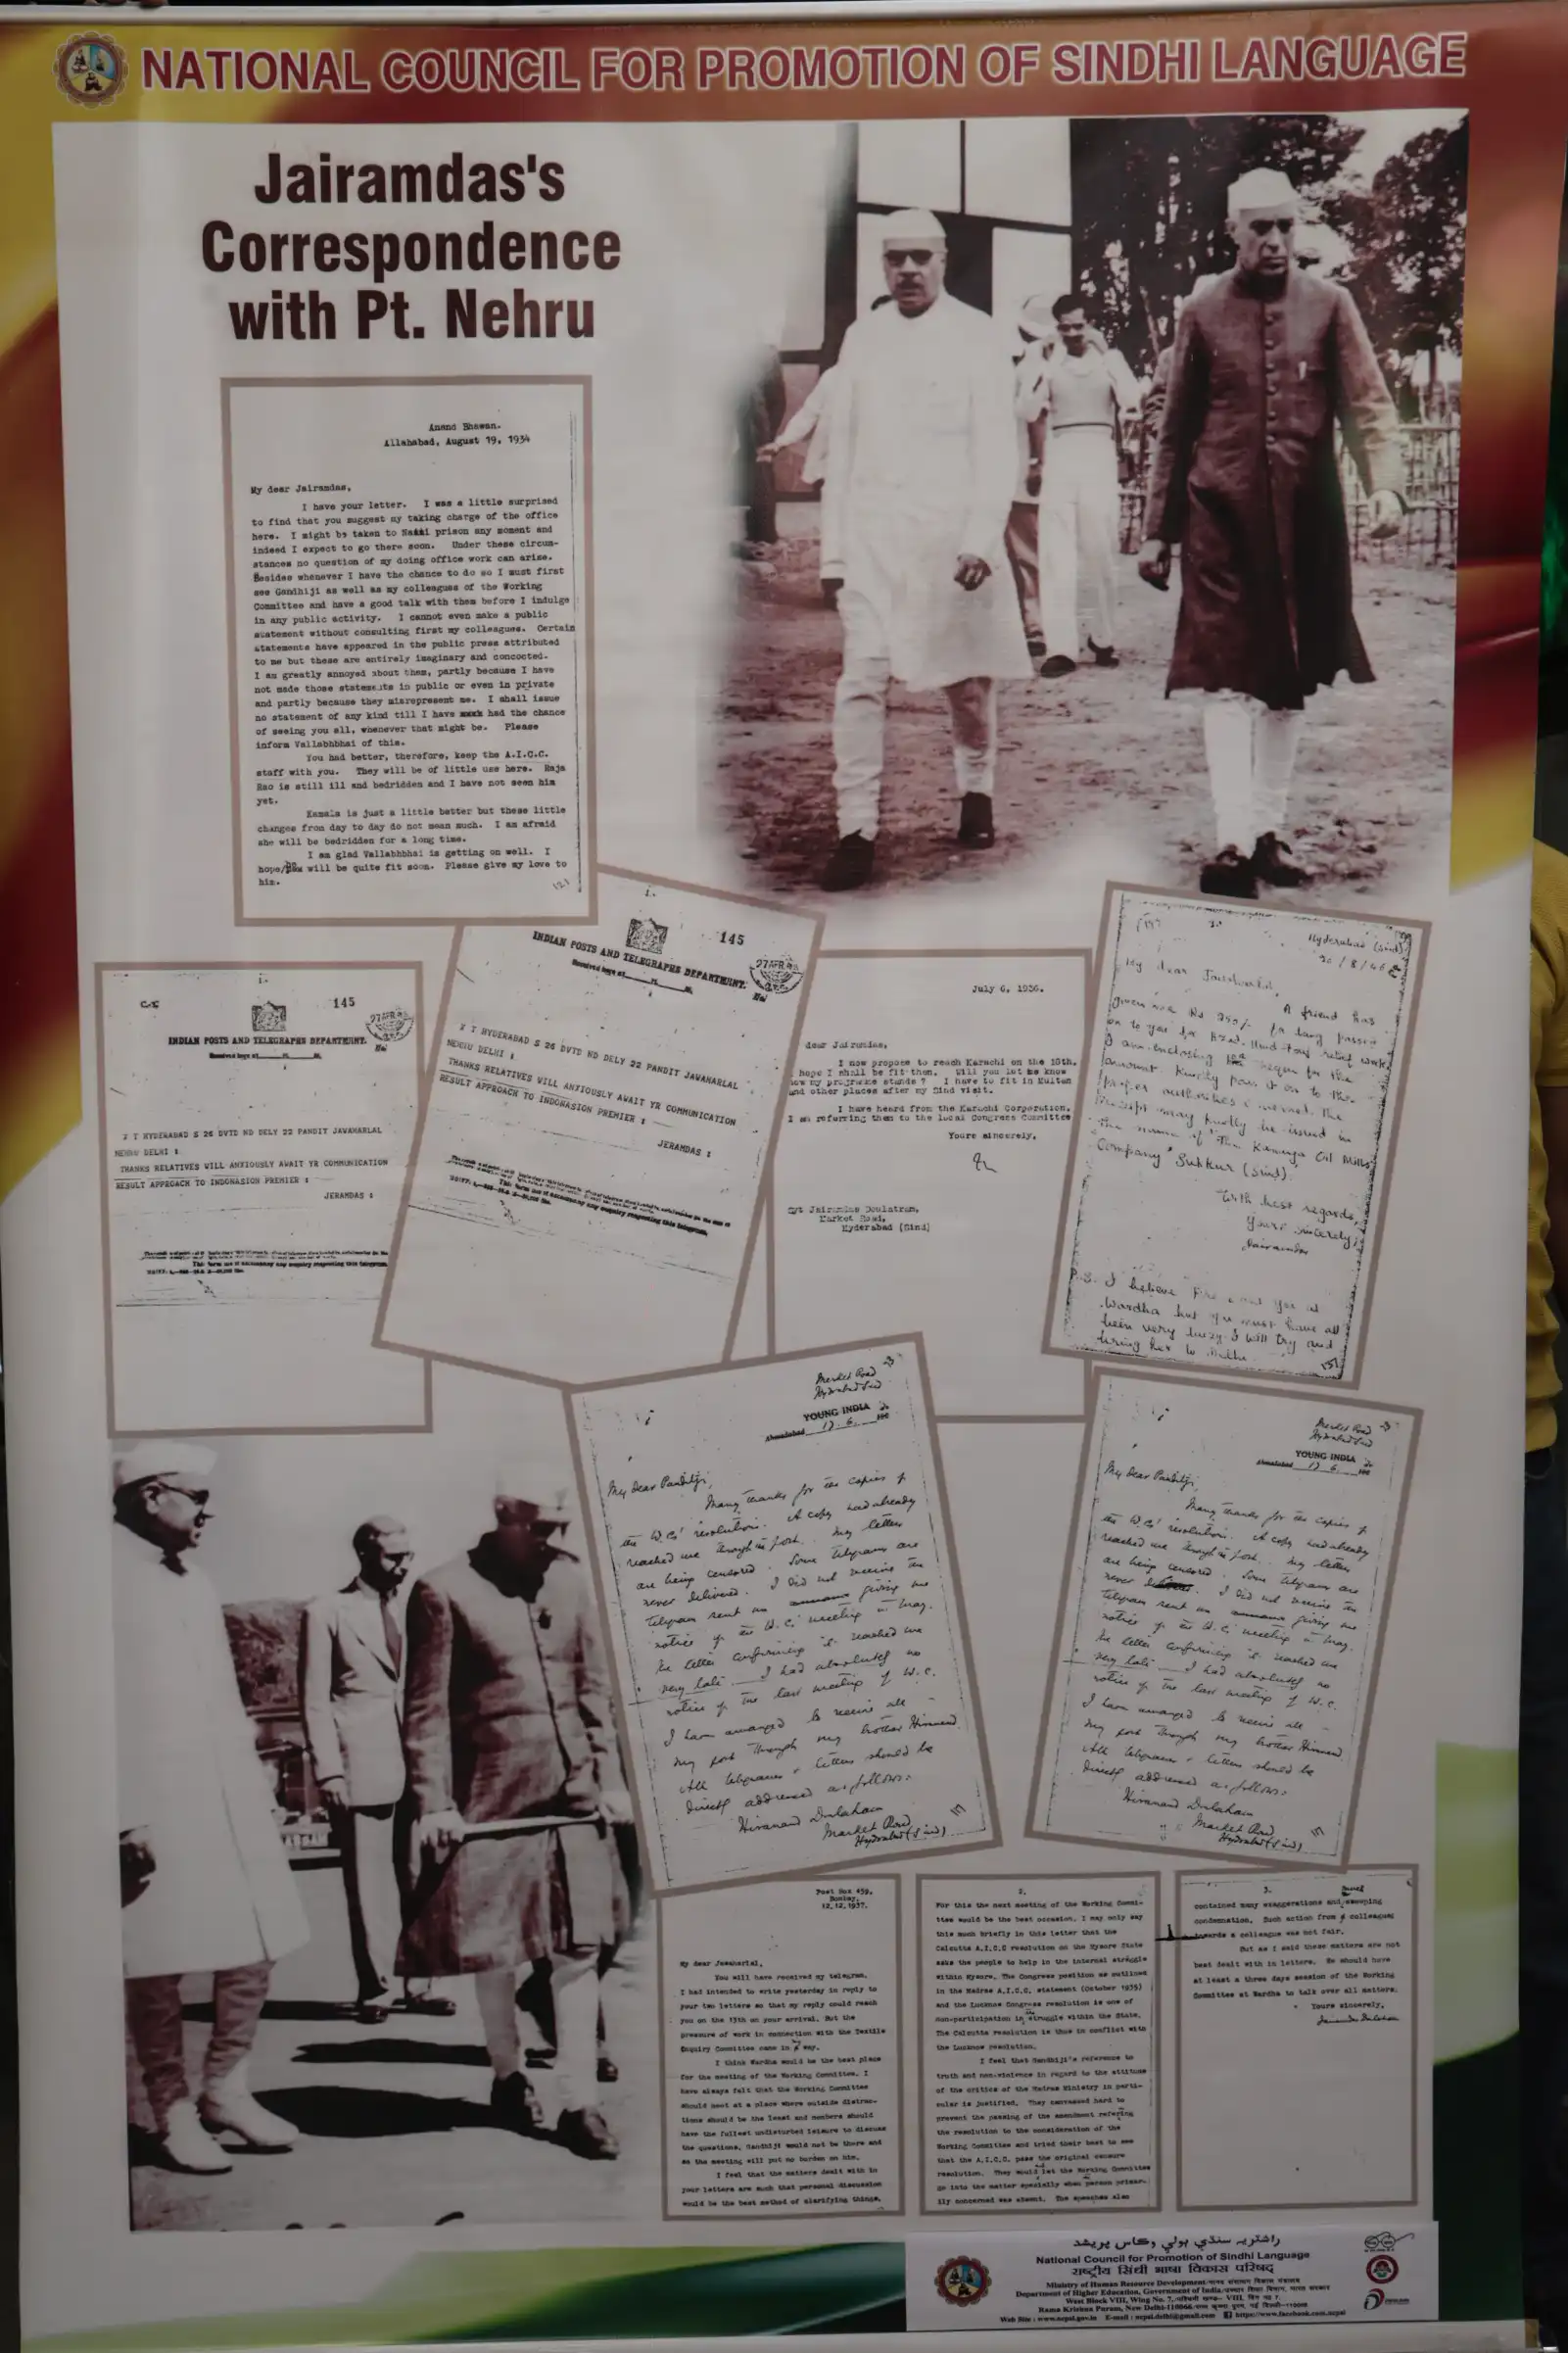 NATIONAL COUNCIL FOR PROMOTION OF SINDHI LANGUAGE
Jairamdas's
Correspondence
with Pt. Nehru
Anand Bhawan.
Allahabad, August 19, 1934
My dear Jairamdas,
I have your letter. I was a little surprised
to find that you suggest my taking charge of the office
here. I might be taken to prison any moment and
indeed I expect to go there soon. Under these circum-
stances no question of my doing office work can arise.
Besides whenever I have the chance to do so I must first
see Gandhiji as well as my colleagues of the Working
Committee and have a good talk with them before I indulge
in any public activity. I cannot even make a public
statement without consulting first my colleagues. Certain
statements have appeared in the public press attributed
to me but these are entirely imaginary and concocted.
I am greatly annoyed about them, partly because I have
not made those statements in public or even in private
and partly because they misrepresent me. I shall issue
no statement of any kind till I have had the chance
of seeing you all, whenever that might be. Please
inform Vallabhbhai of this.
You had better, therefore, keep the A.I.C.C.
staff with you. They will be of little use here. Raja
Rao is still ill and bedridden and I have not seen him
yet.
Kamala is just a little better but these little
changes from day to day do not mean much. I am afraid
she will be bedridden for a long time.
I am glad Vallabhbhai is getting on well. I
hope/he will be quite fit soon. Please give my love to
him.
145
INDIAN POSTS AND TELEGRAPHS DEPARTMENT.
X T HYDERABAD S 26 DVTD ND DELY 22 PANDIT JAWAHARLAL
NEHRU DELHI :
THANKS RELATIVES WILL ANXIOUSLY AWAIT YR COMMUNICATION
RESULT APPROACH TO INDONASION PREMIER :
JERAMDAS :
145
INDIAN POSTS AND TELEGRAPHS DEPARTMENT.
X T HYDERABAD S 26 DVTD ND DELY 22 PANDIT JAWAHARLAL
NEHRU DELHI :
THANKS RELATIVES WILL ANXIOUSLY AWAIT YR COMMUNICATION
RESULT APPROACH TO INDONASION PREMIER :
JERAMDAS :
July 6, 1936.
dear Jairamdas,
I now propose to reach Karachi on the 18th.
hope I shall be fit then. Will you let me know
how my programme stands ? I have to fit in Multan
and other places after my Sind visit.
I have heard from the Karachi Corporation.
I am referring them to the local Congress Committee
Yours sincerely,
Jairamdas Doulatram,
Market Road,
Hyderabad (Sind)
Hyderabad (Sind)
My dear Jawaharlal,
A friend has
given me Rs 250/-
on to you for
I am enclosing for the
amount. Kindly pass it on to the
proper authorities The
receipt may kindly be issued in
the name of "The Oil Mills
Company" Sukkur (Sind).
With best regards,
Yours sincerely,
Jairamdas
P.S. I believe
Wardha but you must have all
been very busy. I will try and
bring her to Delhi
Market Road
Hyderabad Sind
YOUNG INDIA
My dear Panditji,
Many thanks for the copies of
the W.C.' resolution. A copy had already
reached me through the post. My letters
are being censored. Some telegrams are
never delivered. I did not receive the
telegram sent me giving me
notice of the W.C. meeting in May.
The letter confirming it reached me
very late. I had absolutely no
notice of the last meeting of W.C.
I have arranged to receive all
my post through my brother Hiranand.
All telegrams & letters should be
directly addressed as follows:
Hiranand Dulatram
Market Road
Hyderabad (Sind)
Market Road
Hyderabad Sind
YOUNG INDIA
My dear Panditji,
Many thanks for the copies of
the W.C.' resolution. A copy had already
reached me through the post. My letters
are being censored. Some telegrams are
never I did not receive the
telegram sent me giving me
notice of the W.C. meeting in May.
The letter confirming it reached me
very late. I had absolutely no
notice of the last meeting of W.C.
I have arranged to receive all
my post through my brother Hiranand.
All telegrams & letters should be
directly addressed as follows:
Hiranand Dulatram
Market Road
Hyderabad (Sind)
Post Box 459,
Bombay,
12.12.1937.
My dear Jawaharlal,
You will have received my telegram.
I had intended to write yesterday in reply to
your two letters so that my reply could reach
you on the 13th on your arrival. But the
pressure of work in connection with the Textile
Enquiry Committee came in my way.
I think Wardha would be the best place
for the meeting of the Working Committee. I
have always felt that the Working Committee
should meet at a place where outside distrac-
tions should be the least and members should
have the fullest undisturbed leisure to discuss
the questions. Gandhiji would not be there and
so the meeting will put no burden on him.
I feel that the matters dealt with in
your letters are such that personal discussion
would be the best method of clarifying things.
2.
For this the next meeting of the Working Commi-
ttee would be the best occasion. I may only say
this much briefly in this letter that the
Calcutta A.I.C.C resolution on the Mysore State
asks the people to help in the internal struggle
within Mysore. The Congress position as outlined
in the Madras A.I.C.C. statement (October 1935)
and the Lucknow Congress resolution is one of
non-participation in the struggle within the State.
The Calcutta resolution is thus in conflict with
the Lucknow resolution.
I feel that Gandhiji's reference to
truth and non-violence in regard to the attitude
of the critics of the Madras Ministry in parti-
cular is justified. They canvassed hard to
prevent the passing of the amendment refering
the resolution to the consideration of the
Working Committee and tried their best to see
that the A.I.C.C. pass the original censure
resolution. They would let the Working Committee
go into the matter specially when person primar-
ily concerned was absent. The speeches also
3.
contained many exaggerations and sweeping
condemnation. Such action from colleagues
towards a colleague was not fair.
But as I said these matters are not
best dealt with in letters. We should have
at least a three days session of the Working
Committee at Wardha to talk over all matters.
Yours sincerely,
راشٽريہ سنڌي ٻولي وڪاس پريشد
National Council for Promotion of Sindhi Language
राष्ट्रीय सिंधी भाषा विकास परिषद्
Ministry of Human Resource Development/मानव संसाधन विकास मंत्रालय
Department of Higher Education, Government of India/उच्चतर शिक्षा विभाग, भारत सरकार
West Block VIII, Wing No. 7,
Rama Krishna Puram, New Delhi-110066
Web Site : www.ncpsl.gov.in E-mail : ncpsl.delhi@gmail.com https://www.facebook.com.ncpsl